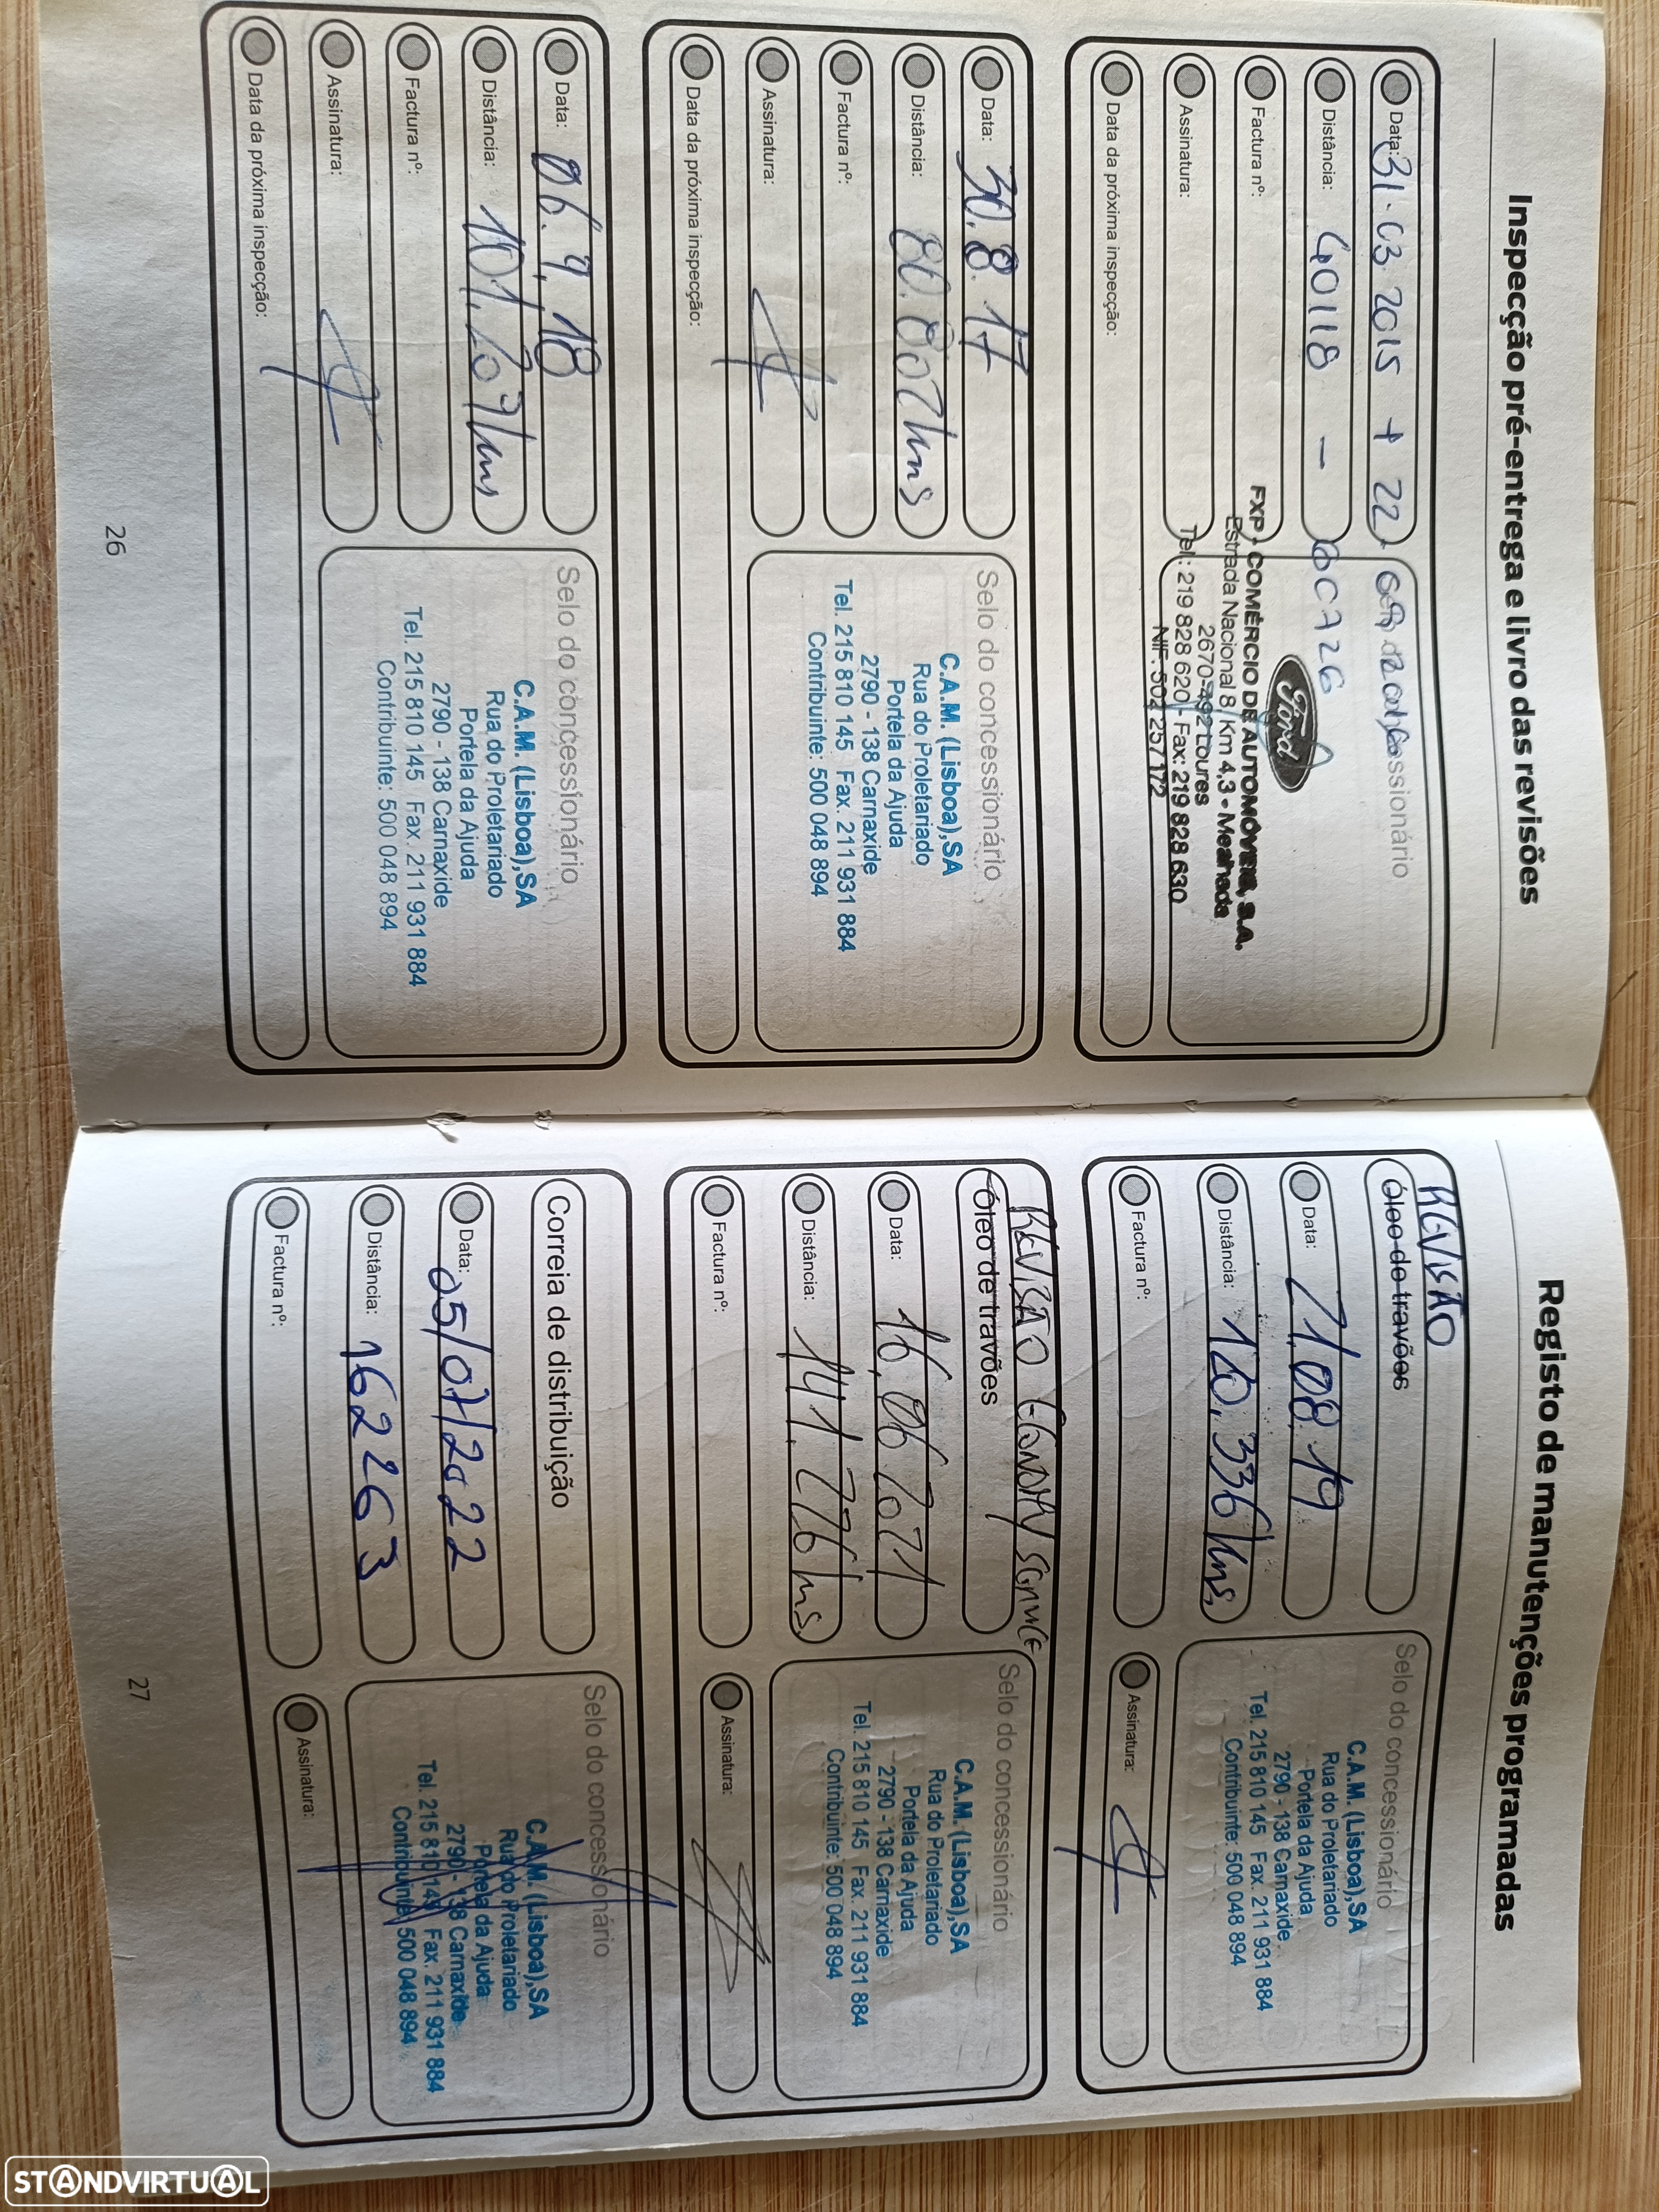 Inspecção pré-entrega e livro das revisões
Data: 31.03.2015 + 22
Distância: 40118 -
Factura nº:
Assinatura:
Data da próxima inspecção:
Ford
FXP - COMÉRCIO DE AUTOMÓVEIS, S.A.
Estrada Nacional 8 Km 4,3 - Mealhada
2670-492 Loures
Tel.: 219 828 620 - Fax: 219 828 630
NIF: 502 257 172
Data: 30.8.17
Distância: 80.807 kms
Factura nº:
Assinatura:
Data da próxima inspecção:
Selo do concessionário
C.A.M. (Lisboa),SA
Rua do Proletariado
Portela da Ajuda
2790 - 138 Carnaxide
Tel. 215 810 145 Fax. 211 931 884
Contribuinte: 500 048 894
Data: 06.9.18
Distância: 101.207 kms
Factura nº:
Assinatura:
Data da próxima inspecção:
Selo do concessionário
C.A.M. (Lisboa),SA
Rua do Proletariado
Portela da Ajuda
2790 - 138 Carnaxide
Tel. 215 810 145 Fax. 211 931 884
Contribuinte: 500 048 894
26
Registo de manutenções programadas
REVISÃO
Óleo de travões
Data: 21.08.19
Distância: 120.336 kms
Factura nº:
Selo do concessionário
C.A.M. (Lisboa),SA
Rua do Proletariado
Portela da Ajuda
2790 - 138 Carnaxide
Tel. 215 810 145 Fax. 211 931 884
Contribuinte: 500 048 894
Assinatura:
REVISÃO ECONOMY SERVICE
Óleo de travões
Data: 16.06.2021
Distância: 141.276 kms
Factura nº:
Selo do concessionário
C.A.M. (Lisboa),SA
Rua do Proletariado
Portela da Ajuda
2790 - 138 Carnaxide
Tel. 215 810 145 Fax. 211 931 884
Contribuinte: 500 048 894
Assinatura:
Correia de distribuição
Data: 05/07/2022
Distância: 162263
Factura nº:
Selo do concessionário
C.A.M. (Lisboa),SA
Rua do Proletariado
Portela da Ajuda
2790 - 138 Carnaxide
Tel. 215 810 145 Fax. 211 931 884
Contribuinte: 500 048 894
Assinatura:
27
STANDVIRTUAL